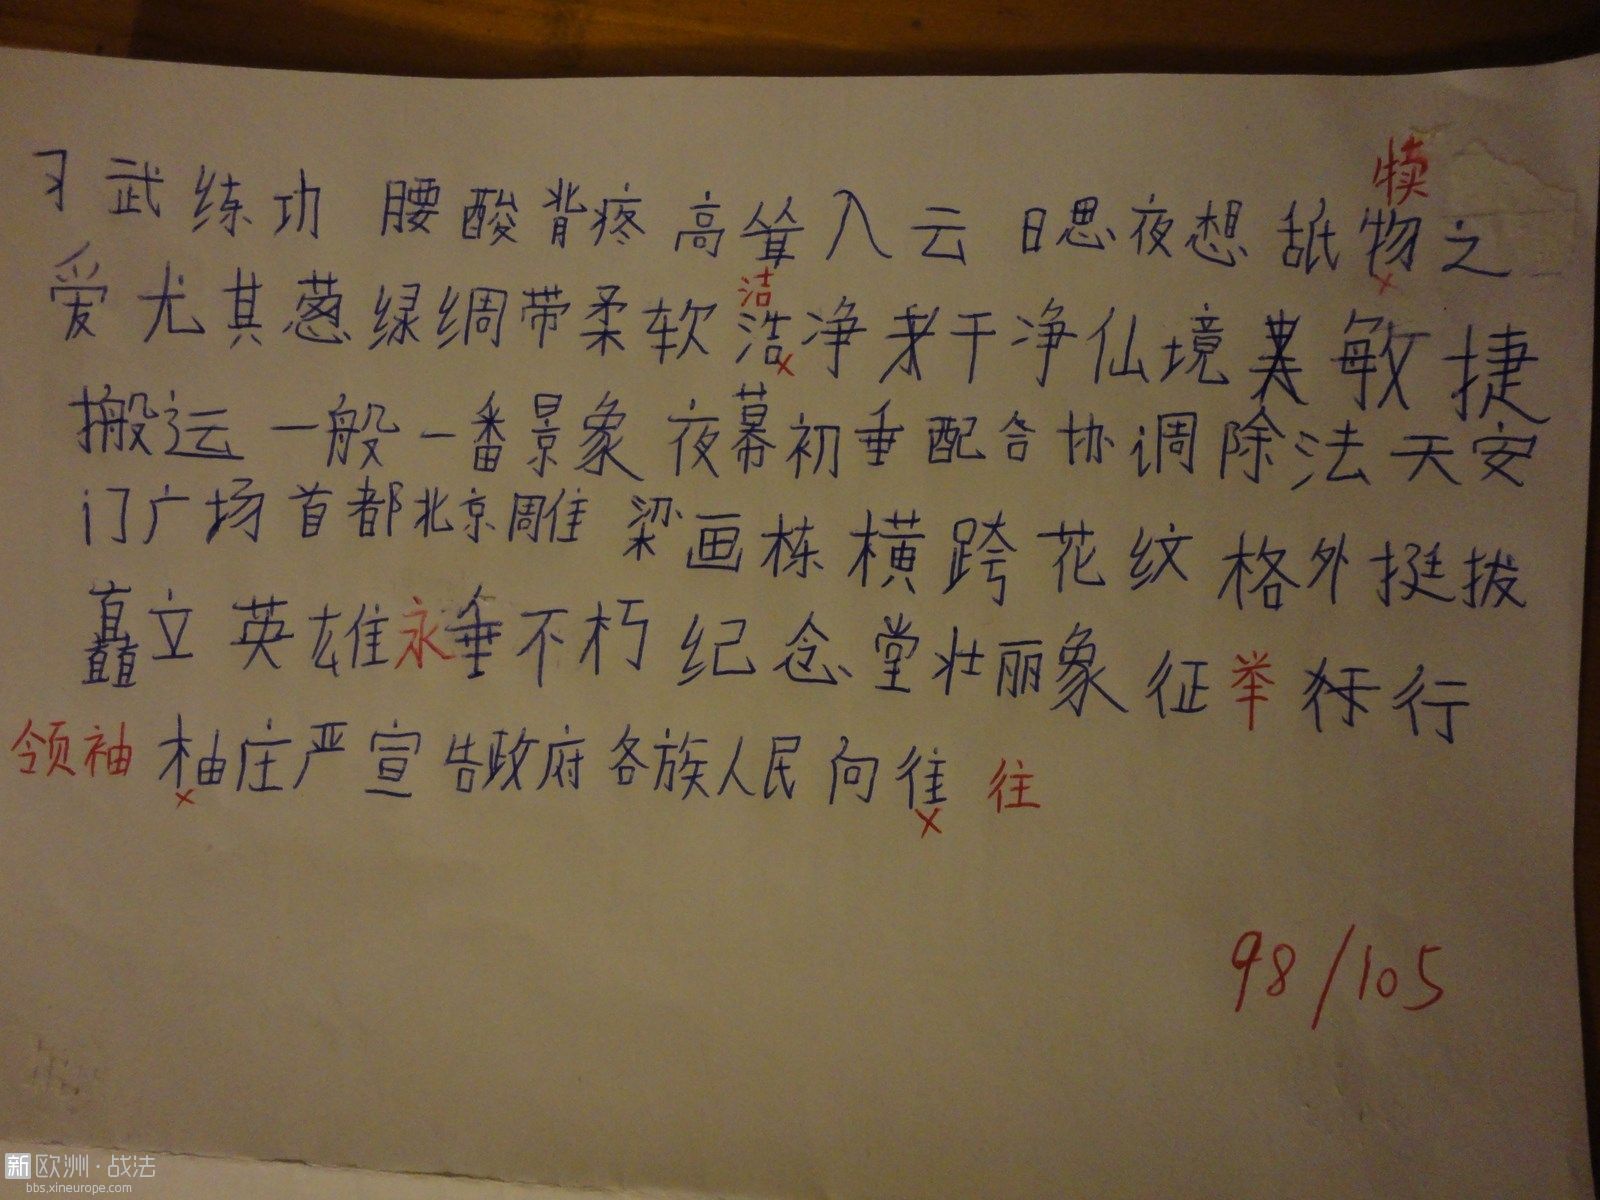 犊
习武练功 腰酸背疼 高耸入云 日思夜想 舐物之
洁
爱尤其葱绿绸带柔软浩净矛干净仙境美敏捷
搬运一般一番景象夜幕初垂配合协调除法天安
门广场首都北京雕梁画栋横跨花纹格外挺拔
矗立英雄永垂不朽纪念堂壮丽象征举行
领袖柚庄严宣告政府各族人民向往往
98/105
新欧洲·战法
bbs.xineurope.com